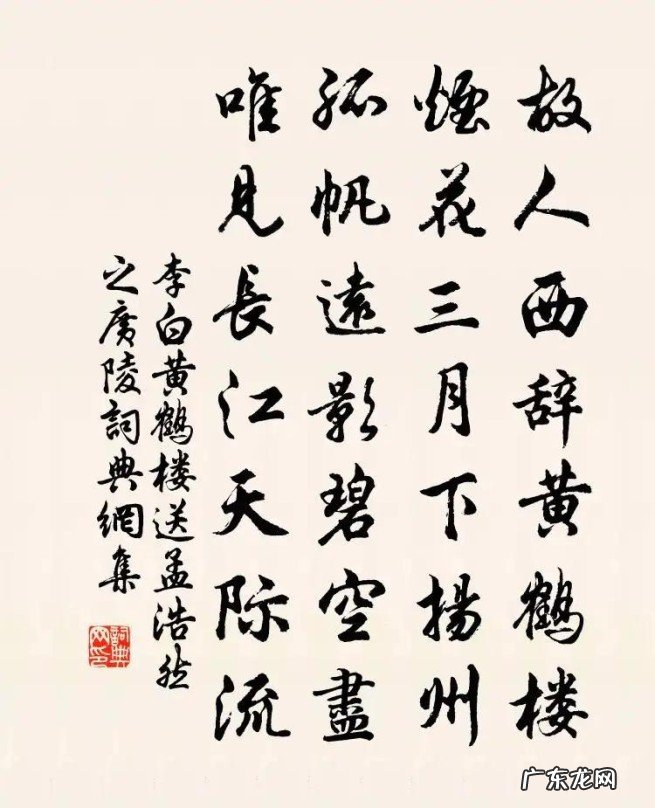 故人西辞黄鹤楼
煙花三月下揚州
孤帆遠影碧空盡
唯見長江天际流
李白黄鶴楼送孟浩然
之廣陵詞典網集
詞典网印
广东龙网